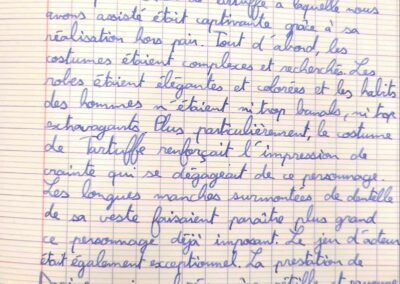 de Tartuffe à laquelle nous
avons assisté était captivante grâce à sa
réalisation hors pair. Tout d'abord, les
costumes étaient complexes et recherchés. Les
robes étaient élégantes et colorées et les habits
des hommes n'étaient ni trop banals, ni trop
extravagants. Plus particulièrement, le costume
de Tartuffe renforçait l'impression de
crainte qui se dégageait de ce personnage.
Les longues manches surmontées de dentelle
de sa veste faisaient paraître plus grand
ce personnage déjà imposant. Le jeu d'acteur
était également exceptionnel. La prestation de